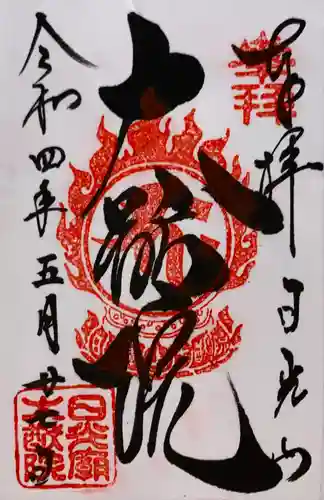 奉拝 日光山
大猷院
令和四年五月廿七日
日光廟
大猷院